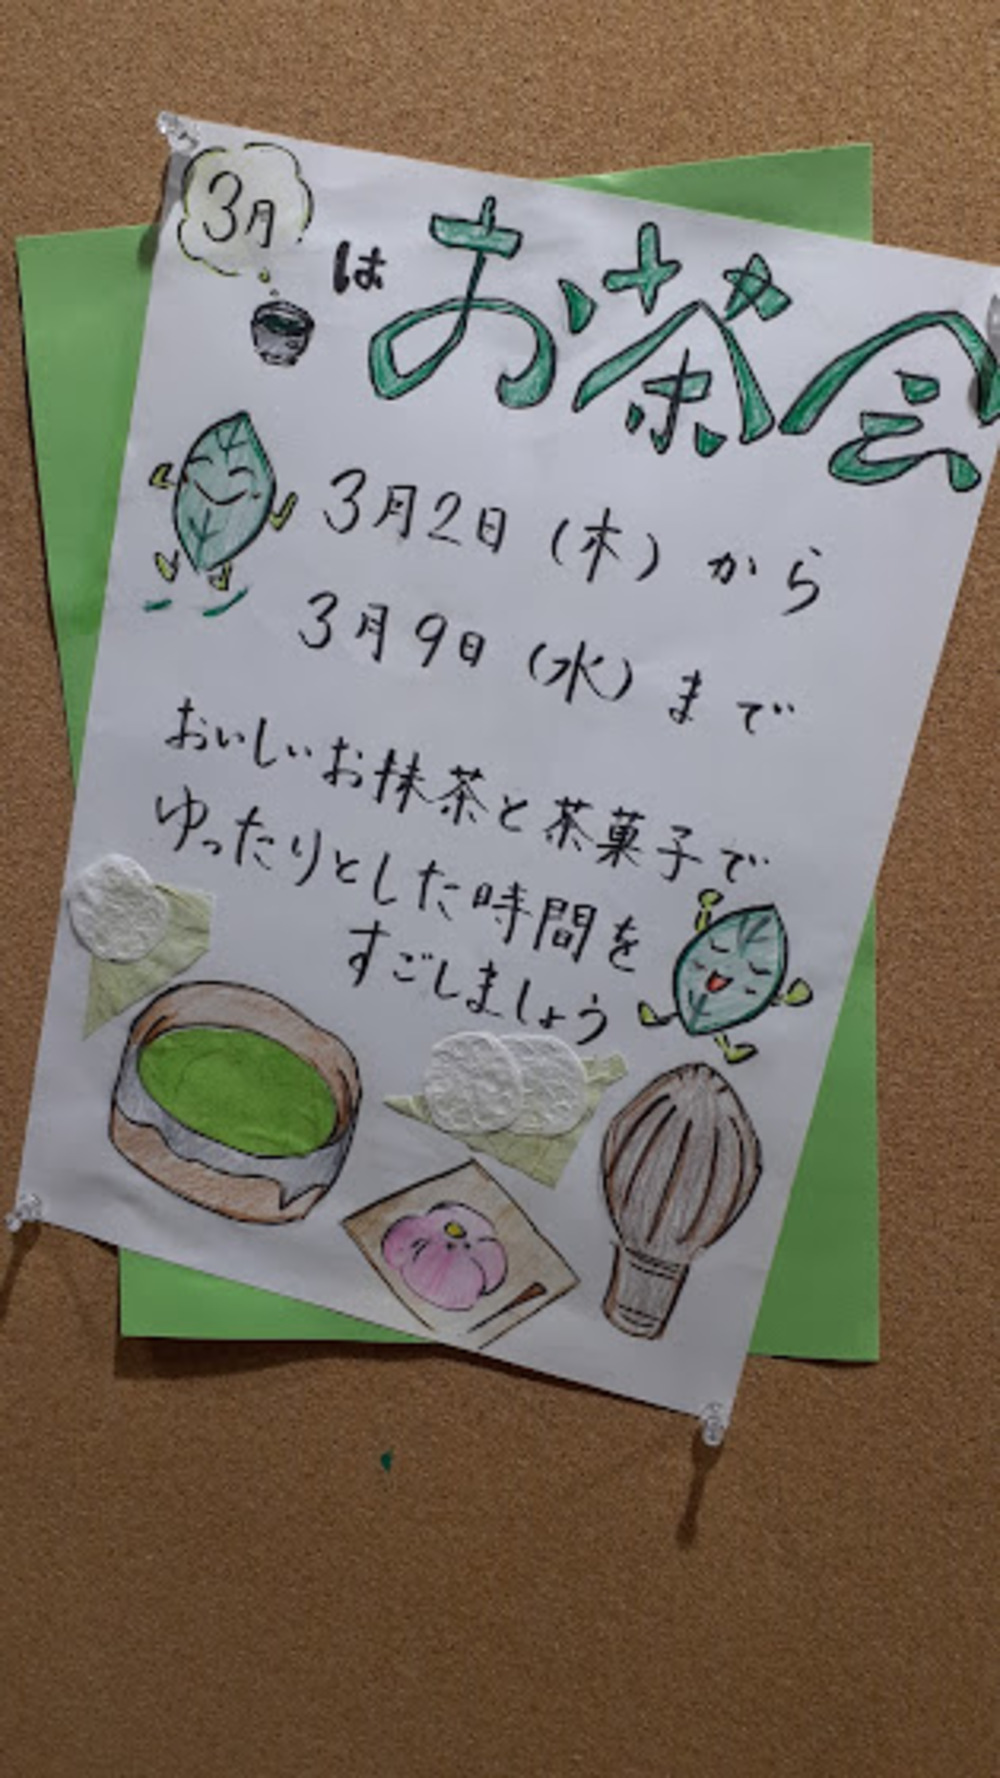 3月はお茶会
3月2日(木)から
3月9日(水)まで
おいしいお抹茶と茶菓子で
ゆったりとした時間を
すごしましょう